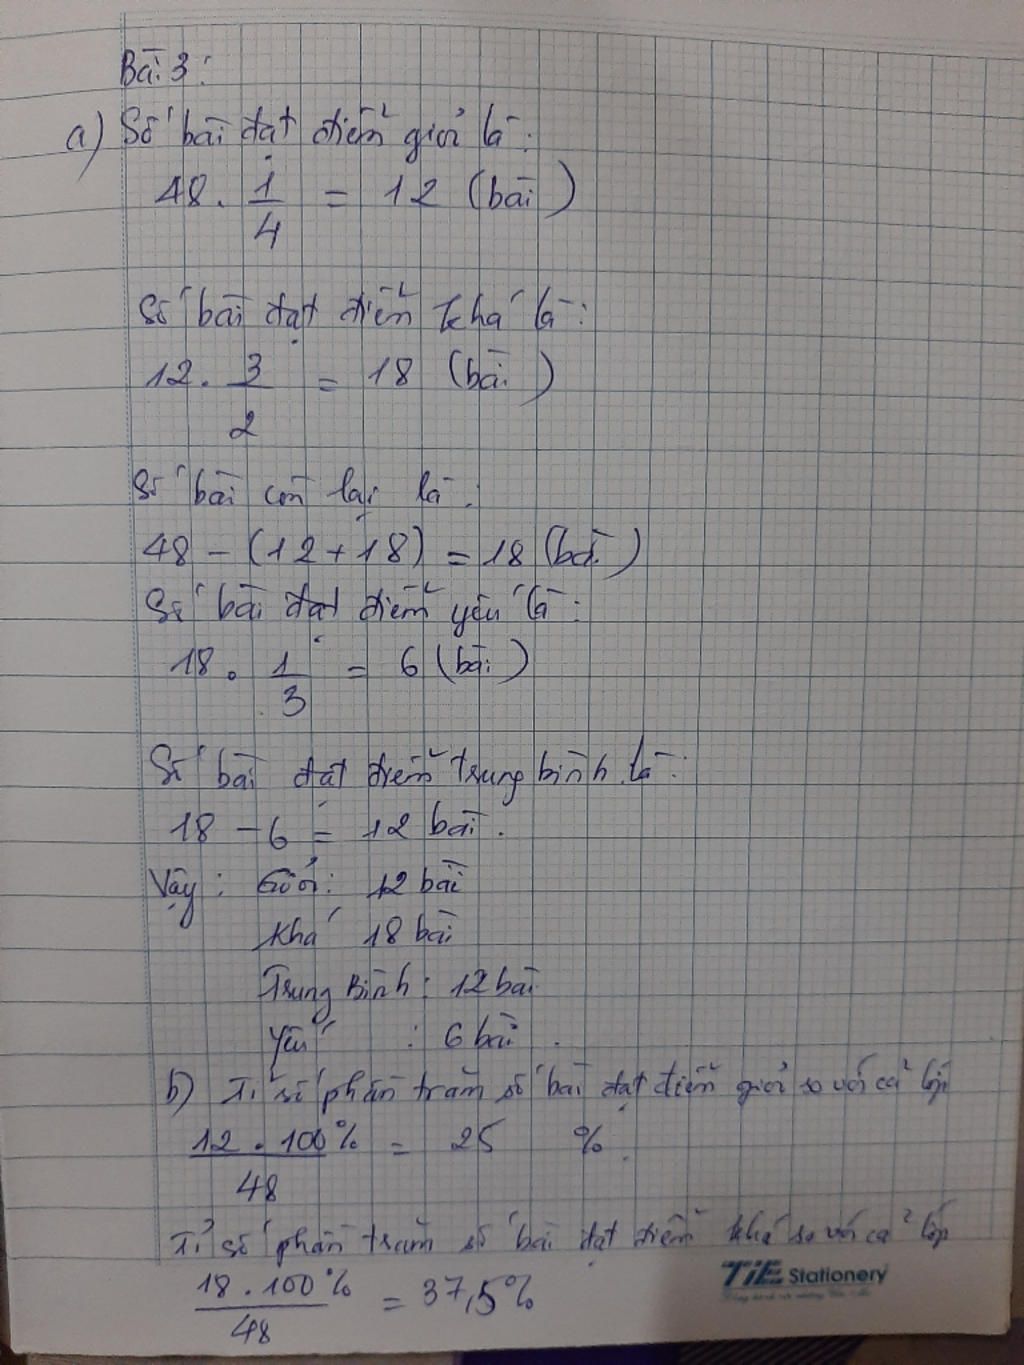 Bài 3:
a) Số bài đạt điểm giỏi là:
48 . 1/4 = 12 (bài)
Số bài đạt điểm khá là:
12 . 3/2 = 18 (bài)
Số bài còn lại là:
48 - (12 + 18) = 18 (bài)
Số bài đạt điểm yếu là:
18 . 1/3 = 6 (bài)
Số bài đạt điểm trung bình là:
18 - 6 = 12 bài.
Vậy: Giỏi: 12 bài
Khá 18 bài
Trung Bình: 12 bài
Yếu : 6 bài.
b) Tỉ số phần trăm số bài đạt điểm giỏi so với cả lớp
12 . 100% / 48 = 25 %.
Tỉ số phần trăm số bài đạt điểm khá so với cả lớp
18 . 100% / 48 = 37,5%
TiE Stationery